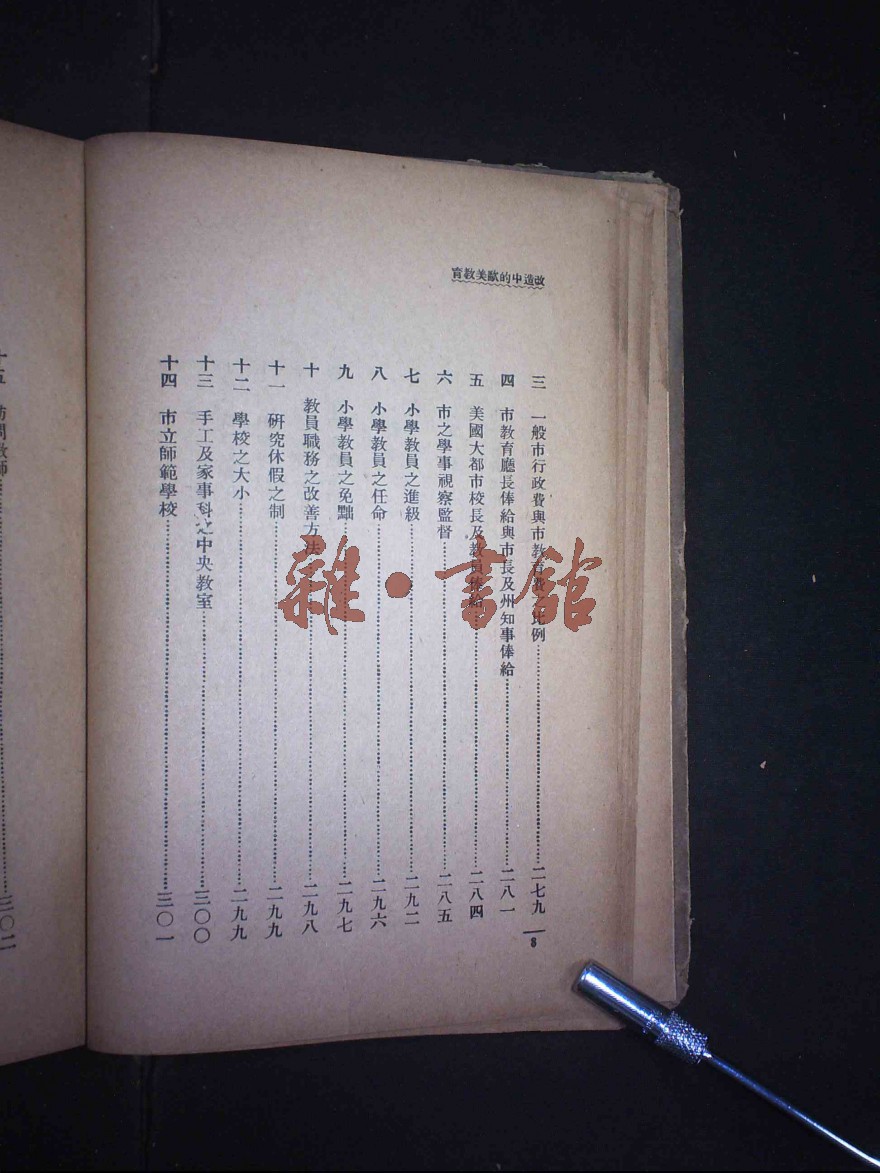 改造中的歐美教育
三 一般市行政費與市教育費之比例……二七九
四 市教育廳長俸給與市長及州知事俸給……二八一
五 美國大都市校長及教員俸給……二八四
六 市之學事視察監督……二八五
七 小學教員之進級……二九二
八 小學教員之任命……二九六
九 小學教員之免黜……二九七
十 教員職務之改善方法……二九八
十一 研究休假之制……二九九
十二 學校之大小……二九九
十三 手工及家事科之中央教室……三〇〇
十四 市立師範學校……三〇一
8
十五 訪問教師……三〇二
雜·書館